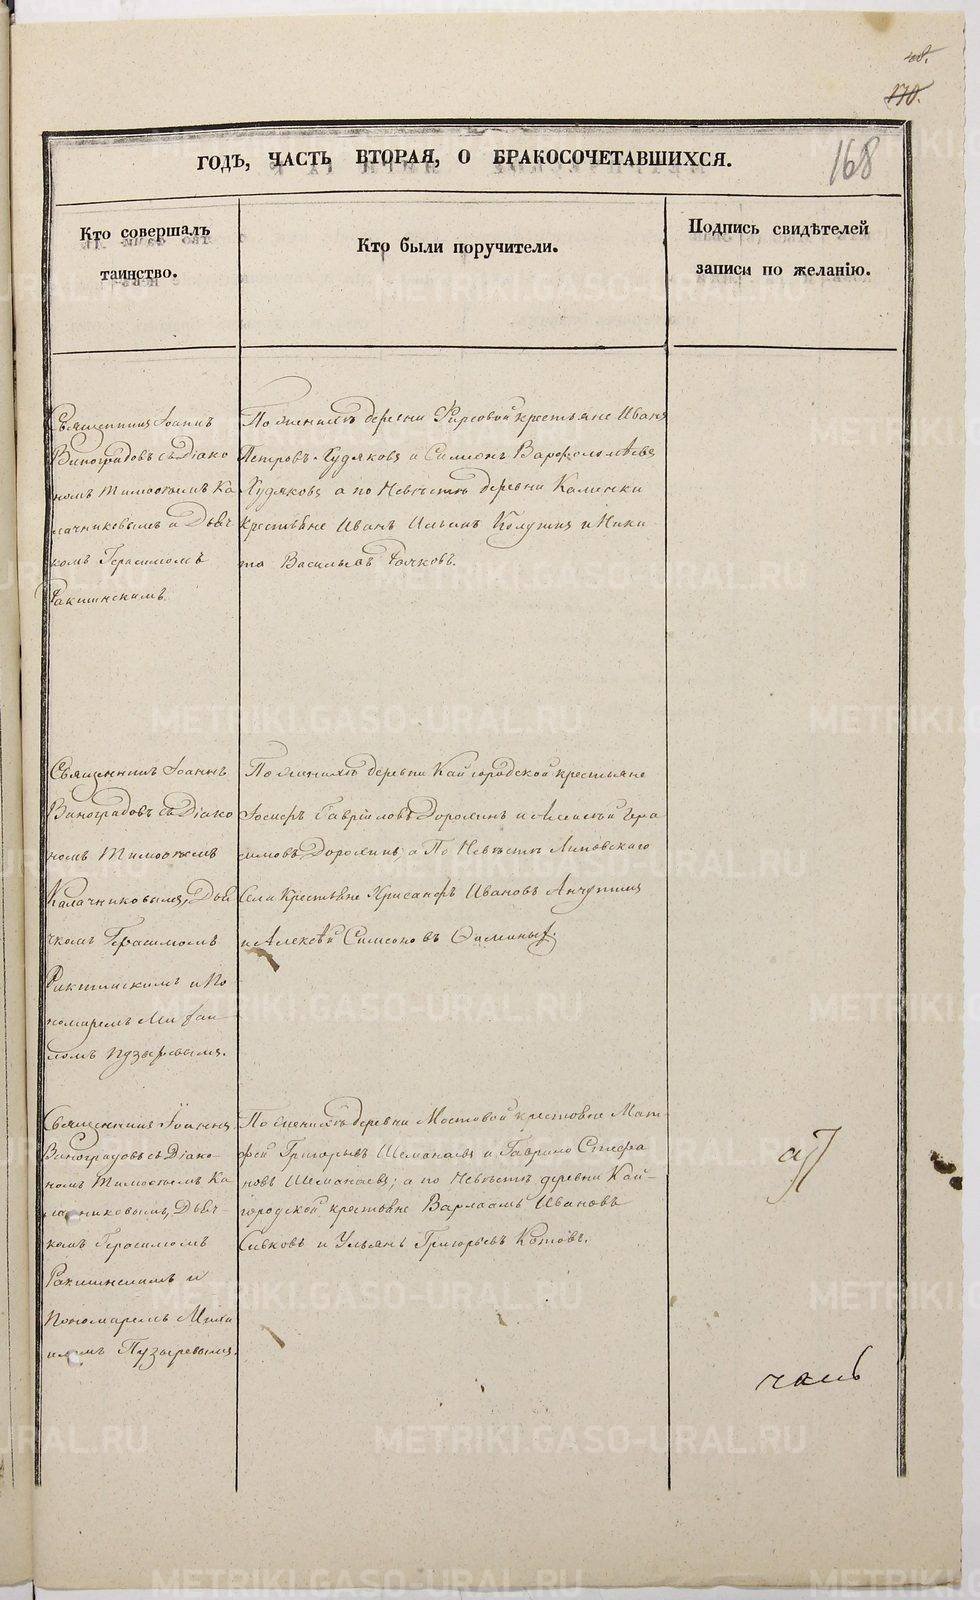 48.
170.
168
ГОДЪ, ЧАСТЬ ВТОРАЯ, О БРАКОСОЧЕТАВШИХСЯ.
Кто совершалъ
таинство.
Кто были поручители.
Подпись свидѣтелей
записи по желанію.
Священникъ Іоаннъ
Виноградовъ съ Діако
номъ Тимоѳеемъ Ка
лачниковымъ и Дьяч
комъ Герасимомъ
Ракитинскимъ.
По женихѣ деревни Фирсовой крестьяне Иванъ
Петровъ Худяковъ и Симеонъ Варфоломѣевъ
Худяковъ а по Невѣстѣ деревни Каменки
крестьяне Иванъ Ильинъ Колугинъ и Ники
та Васильевъ Рачковъ.
Священникъ Іоаннъ
Виноградовъ съ Діако
номъ Тимоѳеемъ
Калачниковымъ, Дья
чкомъ Герасимомъ
Ракитинскимъ и По
номаремъ Михаи
ломъ Пузыревымъ.
По женихѣ деревни Кайгородской крестьяне
Іосифъ Гавріиловъ Дорохинъ и Алексѣй Гера
симовъ Дорохинъ; а По Невѣстѣ Липовскаго
Села Крестьяне Хрисанфъ Ивановъ Анчутинъ
и Алексѣй Симеоновъ Ѳоминыхъ.
Священникъ Іоаннъ
Виноградовъ съ Діако-
номъ Тимоѳеемъ Ка
лачниковымъ, Дьяч-
комъ Герасимомъ
Ракитинскимъ и
Пономаремъ Михаи
иломъ Пузыревымъ.
По женихѣ деревни Мостовой крестьяне Мат-
фей Григорьевъ Шеманаевъ и Гаврило Стефа
новъ Шеманаевъ; а по Невѣстѣ деревни Кай-
городской крестьяне Варлаамъ Ивановъ
Сивковъ и Ульянъ Григорьевъ Котовъ.
METRIKI.GASO-URAL.RU